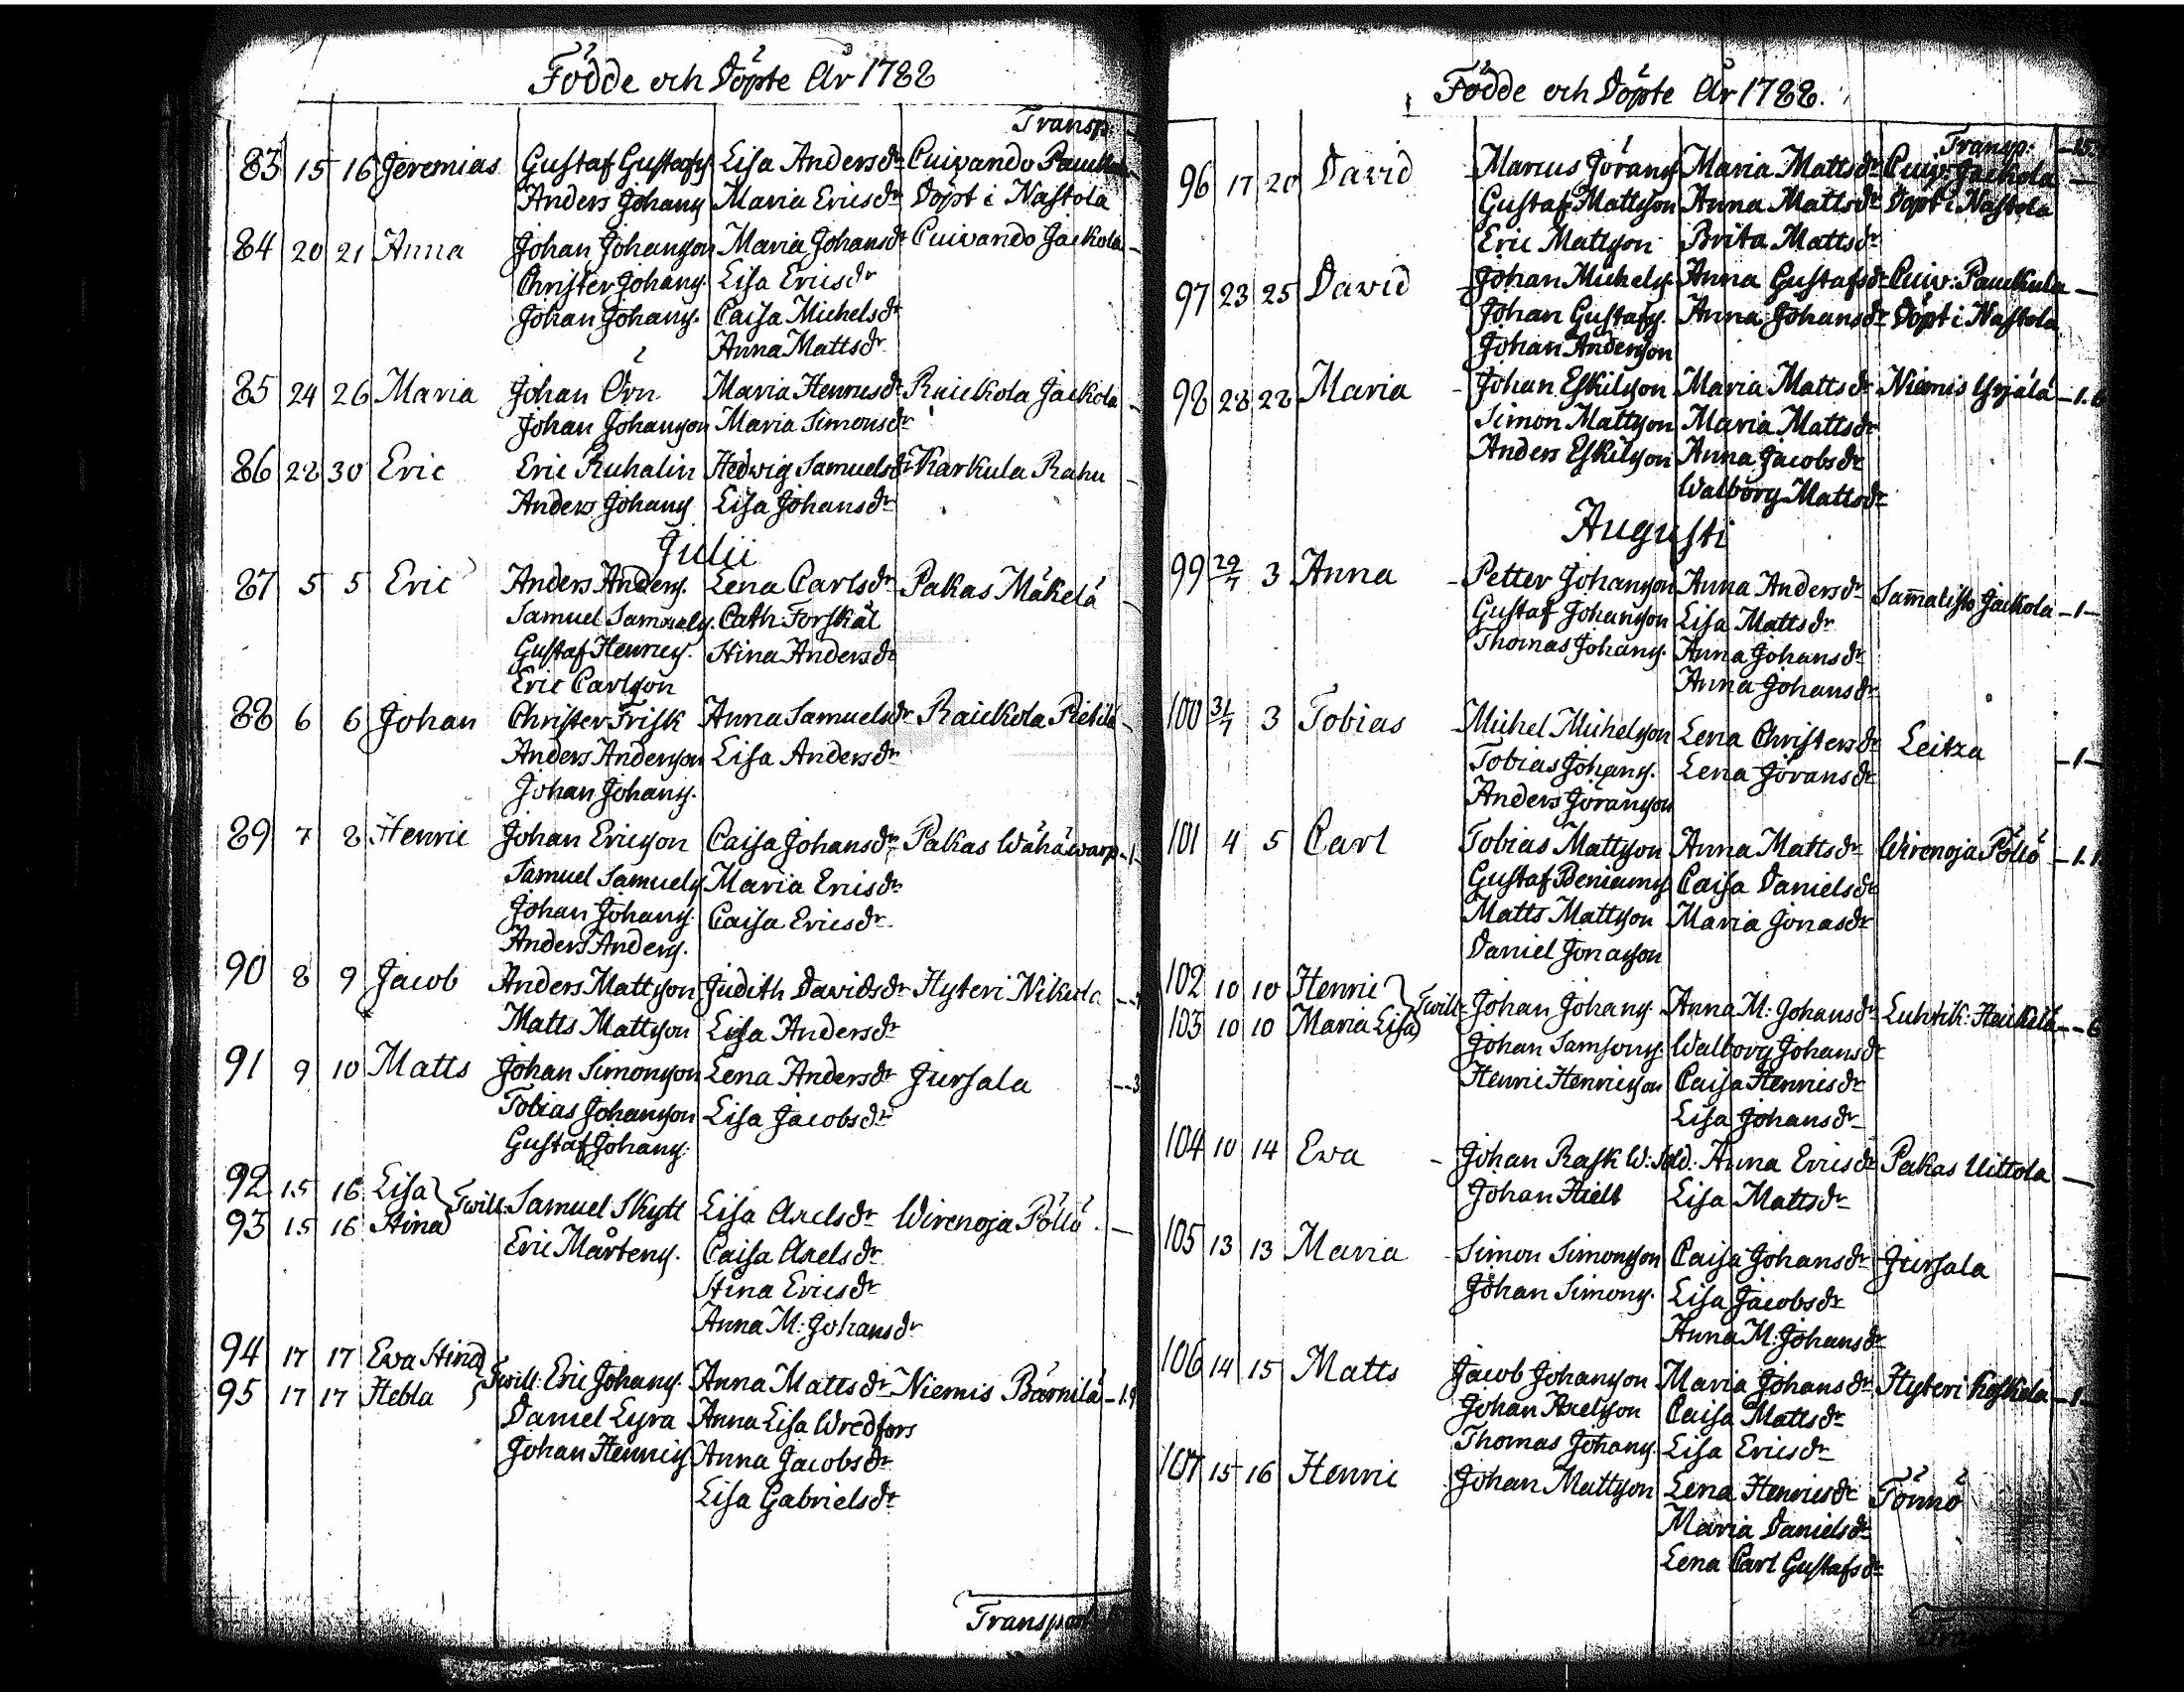 Födde och Döpte År 1788
Transp:
83 15 16 Jeremias Gustaf Gustafs. Lisa Andersdr Cuivando
Anders Johans. Maria Ericsdr Döpt i Nastola
84 20 21 Anna Johan Johansson Maria Johansdr Cuivando Jackola
Christer Johans. Lisa Ericsdr
Johan Johans. Caisa Michelsdr
Anna Mattsdr
85 24 26 Maria Johan Örn Maria Henricsdr Raickola Jackola
Johan Johansson Maria Simonsdr
86 28 30 Eric Eric Ruhalin Hedwig Samuelsdr Karkula Rahu
Anders Johans. Lisa Johansdr
Julii
87 5 5 Eric Anders Anders. Lena Carlsdr Pakas Mäkelä
Samuel Samuels. Cath. Forskål
Gustaf Henrics. Stina Andersdr
Eric Carlsson
88 6 6 Johan Christer Frisk Anna Samuelsdr Raickola
Anders Andersson Lisa Andersdr
Johan Johans.
89 7 8 Henric Johan Ericsson Caisa Johansdr Pakas Wähäwarp. -1-
Samuel Samuels. Maria Ericsdr
Johan Johans. Caisa Ericsdr
Anders Anders.
90 8 9 Jacob Anders Mattsson Judith Davidsdr Hyteri Nikula
Matts Mattsson Lisa Andersdr
91 9 10 Matts Johan Simonsson Lena Andersdr Jursala --3
Tobias Johansson Lisa Jacobsdr
Gustaf Johans.
92 15 16 Lisa } Twill. Samuel Skytt Lisa Axelsdr Wirenoja Pöllö
93 15 16 Stina
Eric Mårtens. Caisa Axelsdr
Stina Ericsdr
Anna M: Johansdr
94 17 17 Eva Stina } Twill: Eric Johans. Anna Mattsdr Niemis Bärnilä
95 17 17 Hebla
Daniel Lyra Anna Lisa Wredfors
Johan Henrics. Anna Jacobsdr
Lisa Gabrielsdr
Transport
Födde och Döpte År 1788.
Transp:
96 17 20 David Marcus Jörans. Maria Mattsdr Cuiv: Jackola
Gustaf Mattsson Anna Mattsdr Döpt i Nastola
Eric Mattsson Brita Mattsdr
97 23 25 David Johan Michels. Anna Gustafsdr Cuiv: Pauckula
Johan Gustafs. Anna Johansdr Döpt i Nastola
Johan Andersson
98 28 28 Maria Johan Eskilsson Maria Mattsdr Niemis Yrjälä
Simon Mattsson Maria Mattsdr
Anders Eskilsson Anna Jacobsdr
Walborg Mattsdr
Augusti
99 29/7 3 Anna Petter Johansson Anna Andersdr Sam̄alisto Jackola -1-
Gustaf Johansson Lisa Mattsdr
Thomas Johans. Anna Johansdr
Anna Johansdr
100 31/7 3 Tobias Michel Michelsson Lena Christersdr Leitza -1-
Tobias Johans. Lena Jöransdr
Anders Jöransson
101 4 5 Carl Tobias Mattsson Anna Mattsdr Wirenoja Pöllö
Gustaf Beniams. Caisa Danielsdr
Matts Mattsson Maria Jonasdr
Daniel Jonasson
102 10 10 Henric } Twill: Johan Johans. Anna M: Johansdr Luhtik: Heickilä --6
103 10 10 Maria Lisa
Johan Samsons. Walborg Johansdr
Henric Henricsson Caisa Henricsdr
Lisa Johansdr
104 10 14 Eva Johan Rask W: Sold: Anna Ericsdr Pakas Uittola
Johan Hielt Lisa Mattsdr
105 13 13 Maria Simon Simonsson Caisa Johansdr Jursala
Johan Simons. Lisa Jacobsdr
Anna M: Johansdr
106 14 15 Matts Jacob Johansson Maria Johansdr Hyteri Koskela -1-
Johan Axelsson Caisa Mattsdr
Thomas Johans. Lisa Ericsdr
107 15 16 Henric Johan Mattsson Lena Henricsdr Tönnö
Maria Danielsdr
Lena Carl Gustafsdr